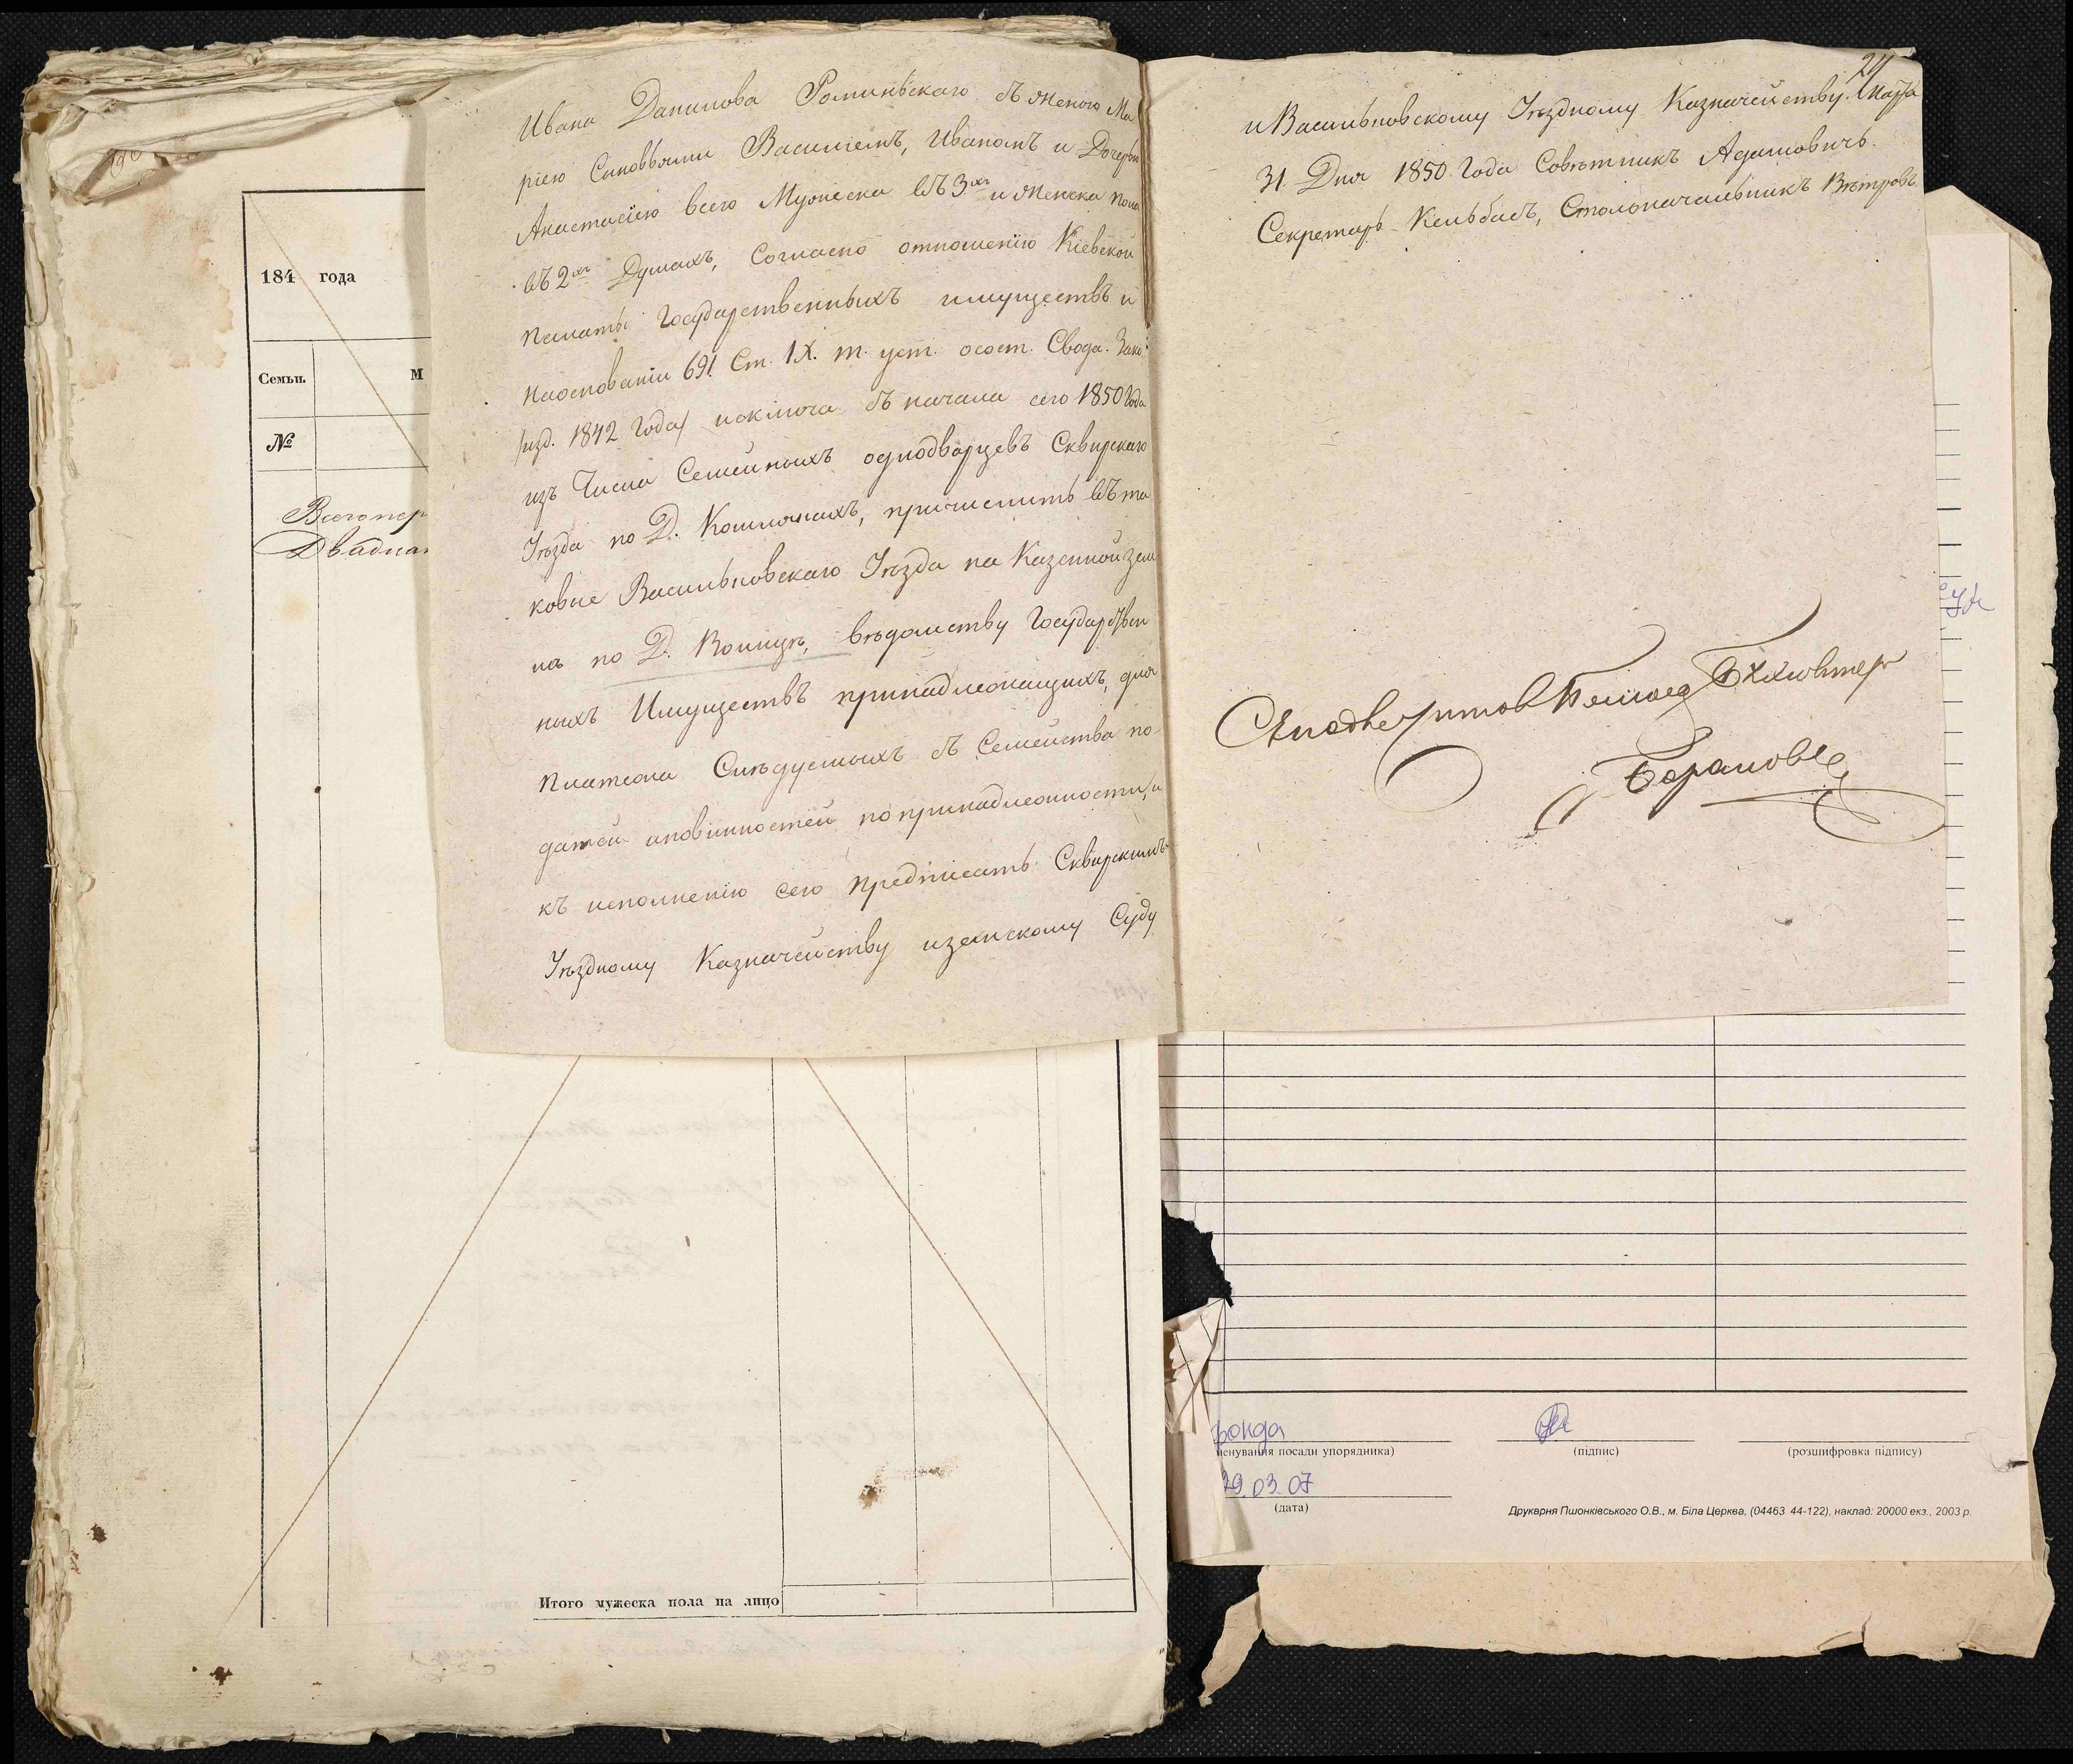 Ивана Данилова Роминьскаго съ женою Ма
ріею Сыновьями Василіемъ, Иваномъ и Дочерью
Анастасіею всего Мужеска въ 3хъ и женска пола
въ 2хъ Душахъ, Согласно отношенію Кіевской
Палаты Государственныхъ имуществъ и
наоснованіи 691 Ст. IX. т. уст. осост. Свода. Зако:
/изд. 1842 года/ исключа съ начала сего 1850 Года
изъ Числа Семейныхъ однодворцевъ Сквирскаго
Уѣзда по Д. причислить въ та
ковые Васильковскаго Уѣзда на Казенной зем
лѣ по Д. вѣдомству Государствен
ныхъ Имуществъ принадлежащихъ, для
Платежа Слѣдуемыхъ съ Семейства по-
датей иповинностей попринадлежности, и
къ исполненію сего предписать Сквирскимъ
Уѣздному Казначейству иземскому Суду
24
и Васильковскому Уѣздному Казначейству. Марта
31 Дня 1850 Года Совѣтникъ Адамовичъ.
Секретарь Кельбасъ, Столоначальникъ Вѣтровъ.
Бухгалтер
184 года
Семьи. М
№
Всего пер
Двадца
Итого мужеска пола на лицо
фонда
(найменування посади упорядника)
(підпис)
(розшифровка підпису)
29.03.07
(дата)
Друкарня Пшонківського О.В., м. Біла Церква, (04463 44-122), наклад: 20000 екз., 2003 р.